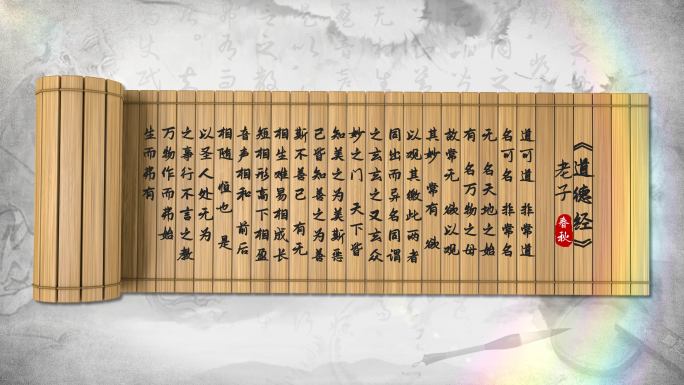 《道德经》
老子
春秋
道可道 非常道
名可名 非常名
无 名天地之始
有 名万物之母
故常无 欲以观
其妙 常有 欲
以观其徼此两者
同出而异名同谓
之玄玄之又玄众
妙之门 天下皆
知美之为美斯恶
已皆知善之为善
斯不善已 有无
相生难易相成长
短相形高下相盈
音声相和 前后
相随 恒也 是
以圣人处无为
之事行不言之教
万物作而弗始
生而弗有